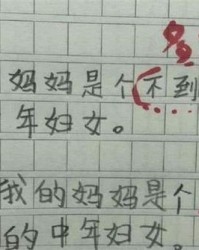 妈妈是个不到
年妇女。
我的妈妈是个
的中年妇女。